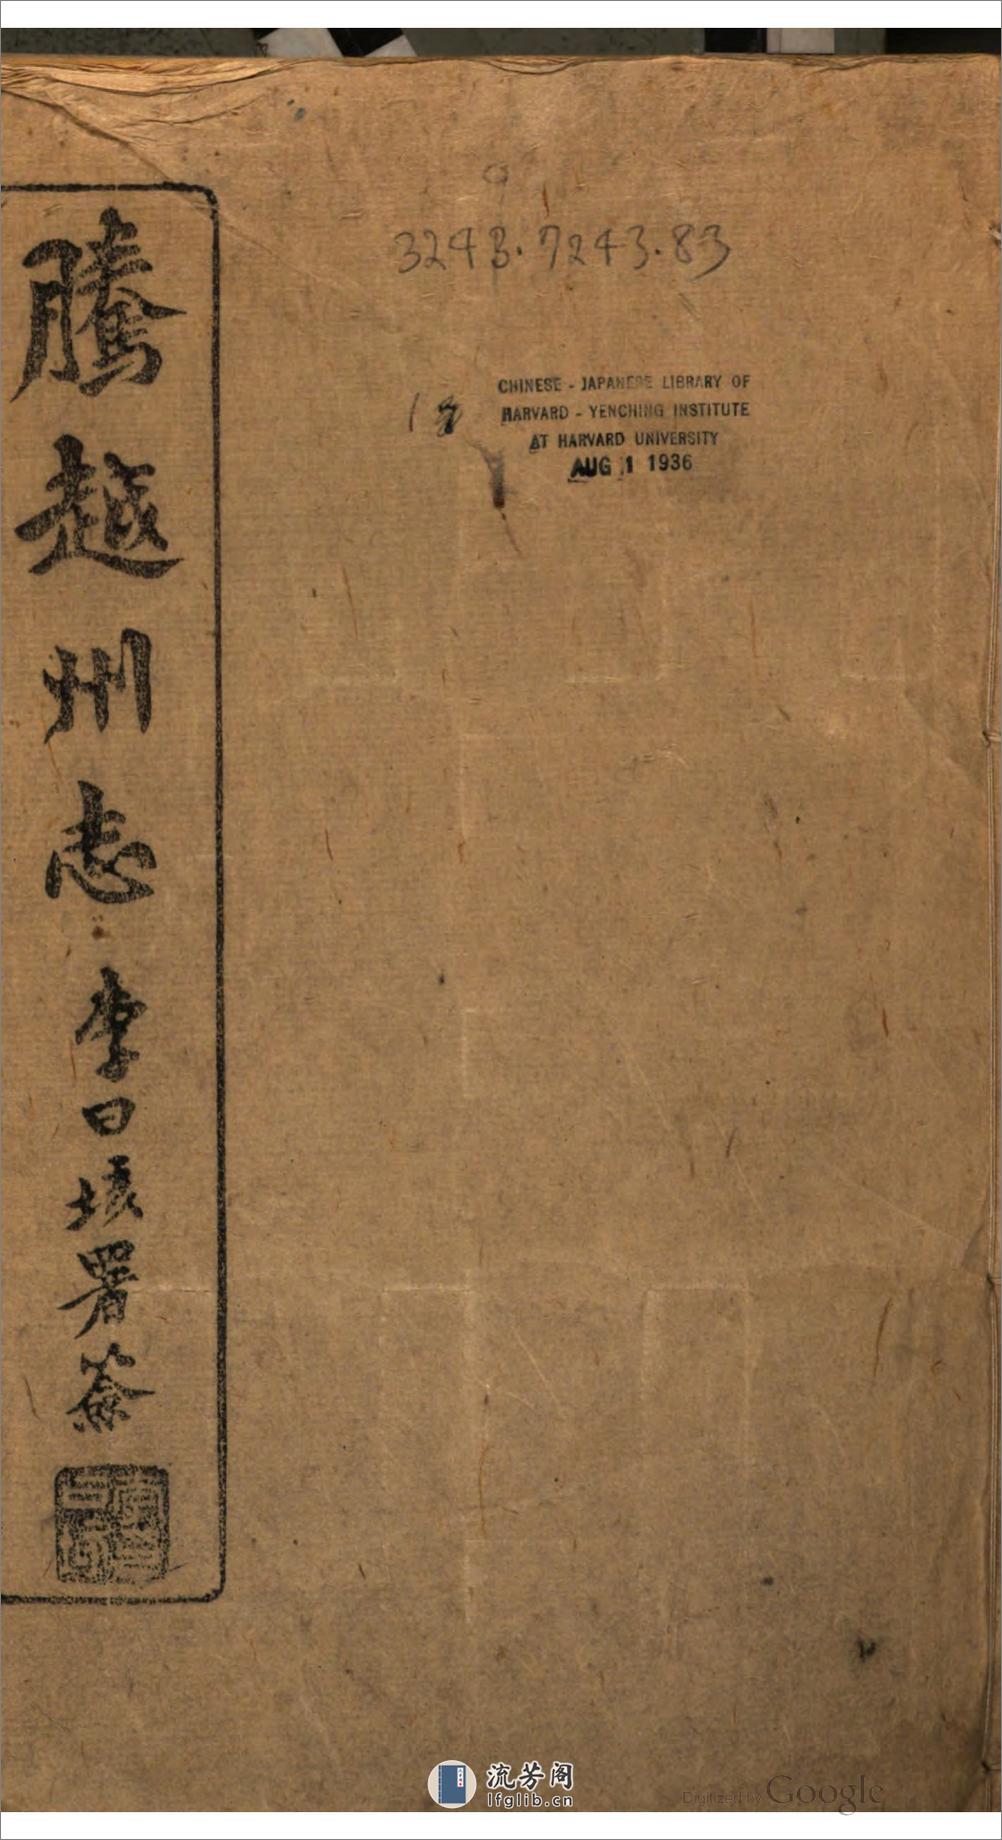 騰越州志
李曰垓署簽
3243.7243.83
CHINESE - JAPANESE LIBRARY OF
HARVARD - YENCHING INSTITUTE
AT HARVARD UNIVERSITY
AUG 1 1936
流芳阁
lfglib.cn
Digitized by Google